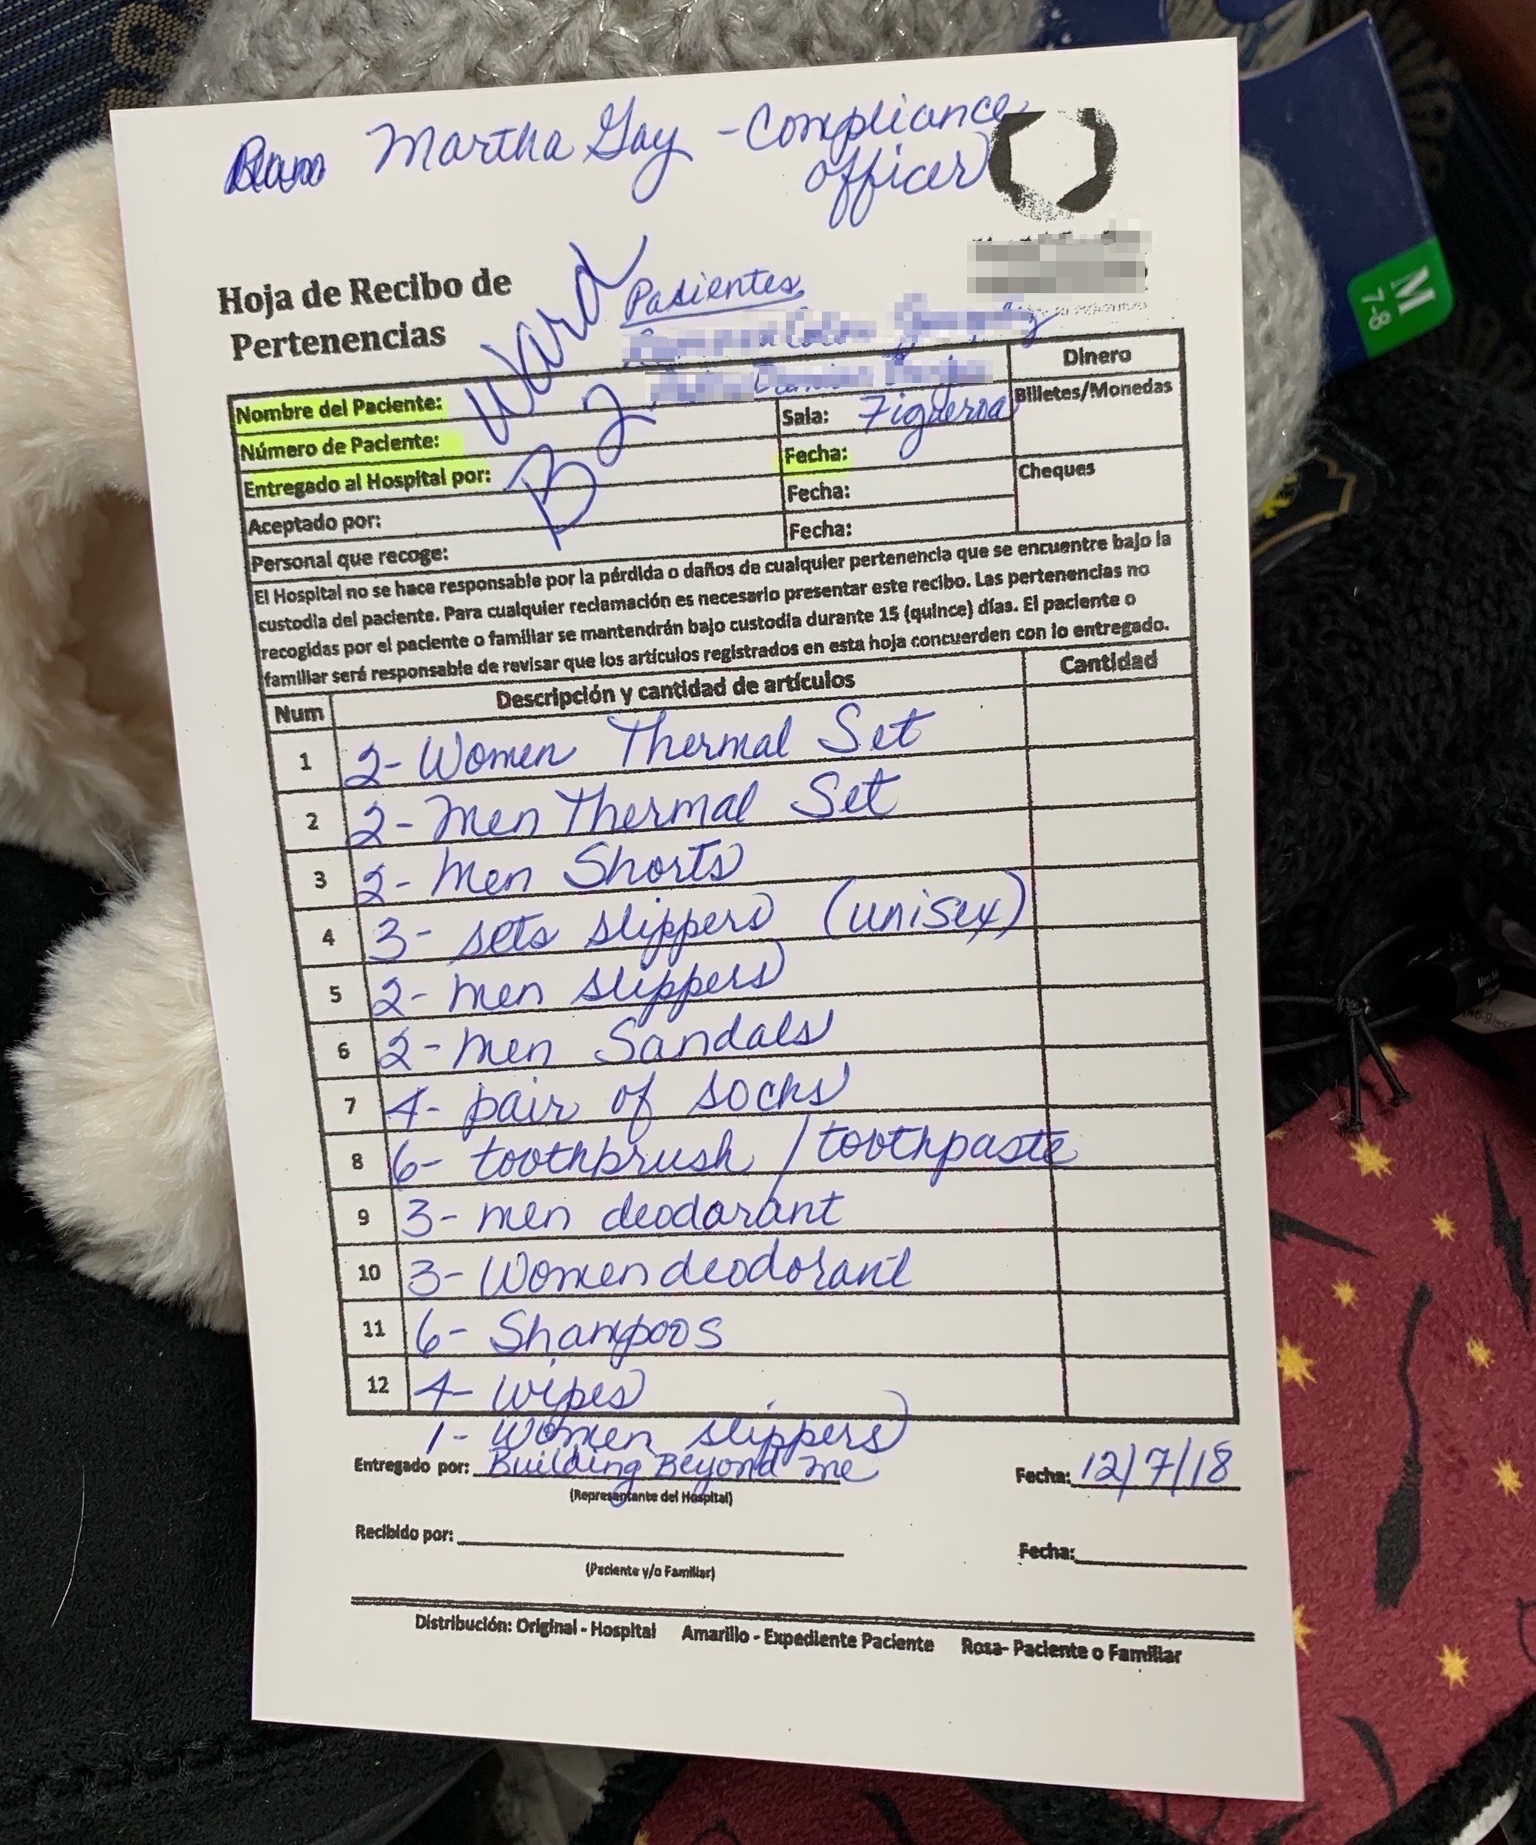 Martha Gay - Compliance
officer
Hoja de Recibo de
Pertenencias
Ward
B2
Pasientes
Figueroa
Nombre del Paciente:
Número de Paciente:
Sala:
Entregado al Hospital por:
Fecha:
Aceptado por:
Fecha:
Personal que recoge:
Fecha:
Dinero
Billetes/Monedas
Cheques
El Hospital no se hace responsable por la pérdida o daños de cualquier pertenencia que se encuentre bajo la
custodia del paciente. Para cualquier reclamación es necesario presentar este recibo. Las pertenencias no
recogidas por el paciente o familiar se mantendrán bajo custodia durante 15 (quince) días. El paciente o
familiar será responsable de revisar que los artículos registrados en esta hoja concuerden con lo entregado.
Num Descripción y cantidad de artículos Cantidad
1 2- Women Thermal Set
2 2- Men Thermal Set
3 2- Men Shorts
4 3- sets slippers (unisex)
5 2- men slippers
6 2- men Sandals
7 4- pair of socks
8 6- toothbrush / toothpaste
9 3- men deodorant
10 3- Women deodorant
11 6- Shampoos
12 4- wipes
1- Women slippers
Entregado por: Building Beyond me Fecha: 12/7/18
(Representante del Hospital)
Recibido por: Fecha:
(Paciente y/o Familiar)
Distribución: Original - Hospital Amarillo - Expediente Paciente Rosa- Paciente o Familiar
M
7-8